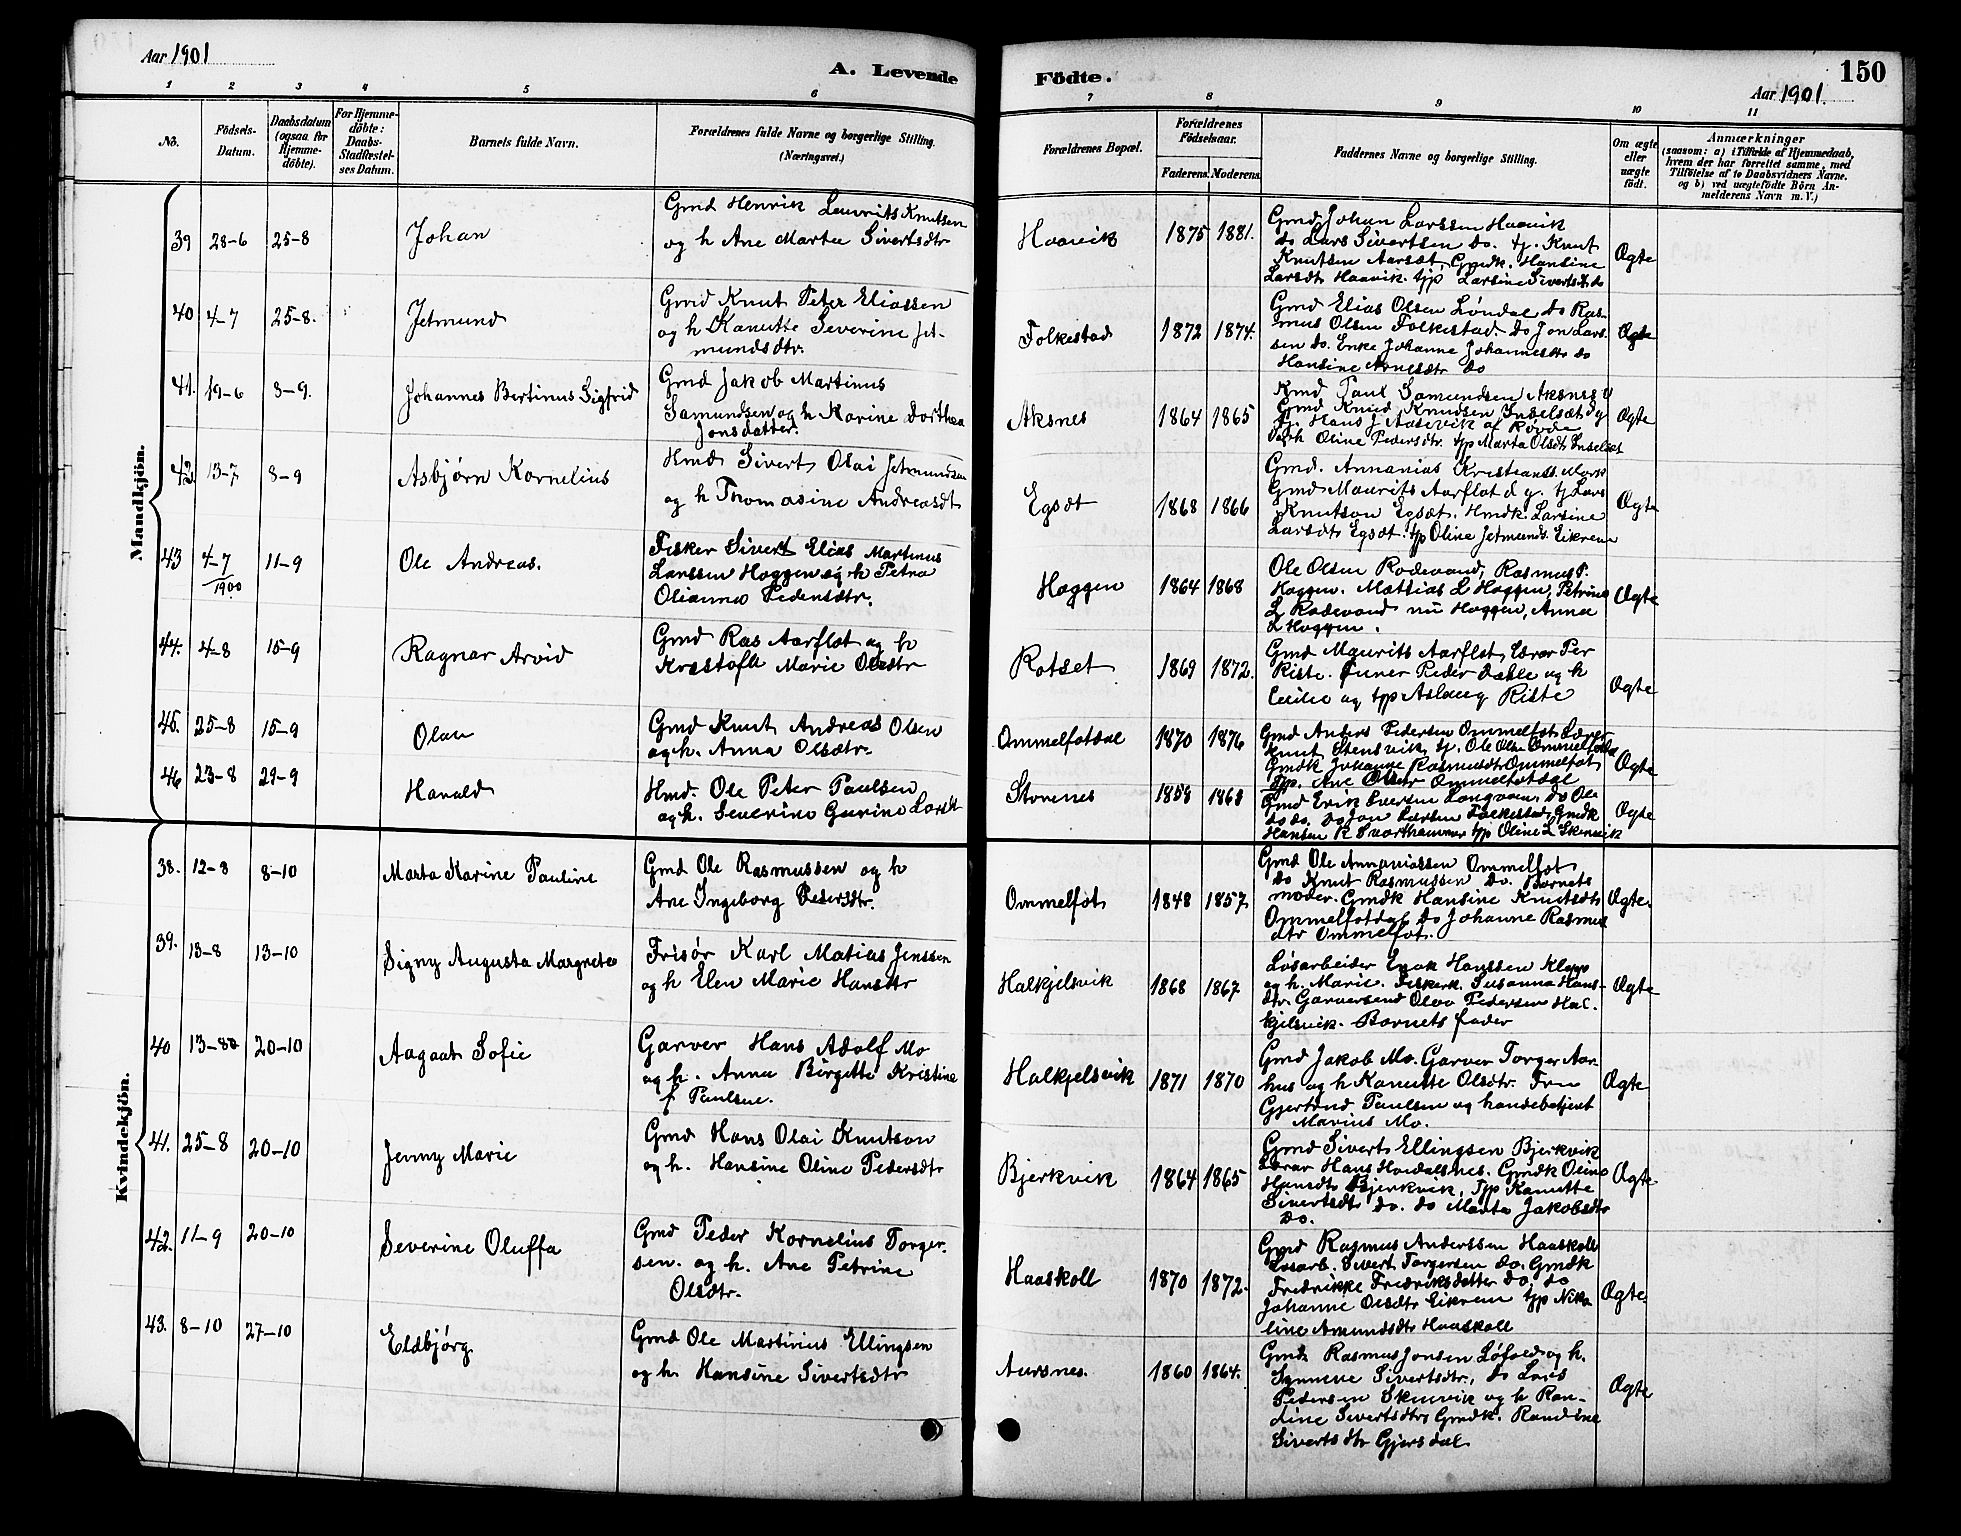 Aar 1901
A. Levende
Födte.
150
Aar 1901.
1 2 3 4 5 6 7 8 9 10 11
No.
Födsels-Datum.
Daabsdatum (ogsaa för Hjemme-döbte).
For Hjemme-döbte: Daabs-Stadfæstel-ses Datum.
Barnets fulde Navn.
Forældrenes fulde Navne og borgerlige Stilling.
(Næringsvei.)
Forældrenes Bopæl.
Forældrenes Födselsaar.
Faderens. Moderens.
Faddernes Navne og borgerlige Stilling.
Om ægte eller uægte födt.
Anmærkninger
(saasom: a) i Tilfælde af Hjemmedaab,
hvem der har forrettet samme, med
Tilföielse af to Daabsvidners Navne.
og b) ved uægtefödte Börn An-
melderens Navn m. V.)
Mandkjön.
39 28-6 25-8 Johan
Gmd Henrik Laurits Knutsen
og h Ane Marta Sivertsdtr
Haavik 1875 1881.
Gmd Johan Larssen Haavik
do Lars Sivertsen do. tj. Knut
Knutsen Aarsæt, Gmdk. Hansine
Larsdt Haavik. tjp Larsine Sivertsdt do
Ægte
40 4-7 25-8. Jetmund
Gmd Knut Peter Eliassen
og h Kanutte Severine Jet-
mundsdtr.
Folkestad 1872 1874.
Gmd Elias Olsen Løndal do Ras-
mus Olsen Folkestad do Jon Lars-
sen do. Enke Johanne Johannesdtr do
Hansine Arnesdtr do
Ægte
41. 19-6 8-9. Johannes Bertinus Sigfrid
Gmd Jakob Martinus
Samundsen og h Karine Dorthea
Jonsdatter.
Aksnes 1864 1865
Kmd Paul Samundsen Aksnes
Gmd Knud Knudsen Inselsæt
tj. Hans J Aasevik af Rovde
Oline Pedersdtr. tjp Marta Olsdt Inselset
Ægte
42. 13-7 8-9 Asbjørn Kornelius
Hmd Sivert Olai Jetmundsen
og h Thomasine Andreasdt
Egsæt 1868 1866
Gmd. Annanias Kristianss. Mork
Gmd Maurits Aarflot d y. tj Lars
Knutson Egsæt. Hmdk. Larsine
Larsdt Egsæt. tjp Oline Jetmunds. Eikrem
Ægte
43 4-7 1900 11-9 Ole Andreas.
Fisker Sivert Elias Martinus
Larssen Haggen og h Petra
Olianna Pedersdtr.
Haggen 1864 1868
Ole Olsen Rødevand, Rasmus P.
Haggen. Mattias L Haggen, Petrine
L Rødevand nu Haggen, Anna
L Haggen.
Ægte
44. 4-8 15-9 Ragnar Arvid
Gmd Ras Aarflot og h
Kristofa Marie Olsdtr
Rotset 1869 1872.
Gmd Maurits Aarflot, Lærar Per
Riste. Peder Dahle og h
Cecilie og tjp Aslaug Riste
Ægte
45. 25-8 15-9 Olav
Gmd Knut Andreas Olsen
og h. Anna Olsdtr.
Ommelfotdal 1870 1876
Gmd Anders Pedersen Ommelfot. Lærer
Knut Stensvik, tj. Ole Olsn Ommelfotdal
Gmdk Johanne Rasmusdtr Ommelfot,
tjp. Ane Olsdtr Ommelfotdal
Ægte
46 23-8 29-9 Harald
Hmd. Ole Peter Paulsen
og h. Severine Gurine Larsdt
Storenes 1858 1868
Gmd Erik Iversen Langvam, do Ole
do do. do Jon Larsen Folkestad, Gmdk
Hansen R Svarthammer tjp Oline L Skinvik
Ægte
Kvindekjön.
38. 12-8 8-10 Marta Karine Pauline
Gmd Ole Rasmussen og h
Ane Ingeborg Pedersdtr.
Ommelfot 1848 1857
Gmd Ole Annaniassen Ommelfot
do Knut Rasmussen do. Barnets
moder. Gmdk Hansine Knutsdtr
Ommelfotdal do Johanne Rasmus
dtr Ommelfot.
Ægte.
39. 13-8 13-10 Signy Augusta Margrete
Frisør Karl Matias Jenssen
og h Elen Marie Hansdtr
Halkjelsvik 1868 1867.
Løsarbeider Enok Hanssen Klepp
og h. Marie. Fiskerk. Susanna Hans-
dtr. Garversvend Olva Pedersen Hal-
kjelsvik. Barnets fader
Ægte
40 13-8 20-10 Aagaat Sofie
Garver Hans Adolf Mo
og h. Anna Birgitte Kristine
f Paulsen.
Halkjelsvik 1871 1870
Gmd Jakob Mo. Garver Torger Aar-
hus og h Kanutte Olsdtr. Fru
Gjertrud Paulsen og handebetjent
Marius Mo.
Ægte
41. 25-8 20-10 Jenny Marie
Gmd Hans Olai Knutson
og h. Hansine Oline Pedersdtr
Bjerkvik 1864 1865
Gmd Sivert Ellingsen Bjerkvik
Lærar Hans Hovdalsnes. Gmdk Oline
Hansdtr Bjerkvik. Tjp Kanutte
Sivertsdtr do. do Marta Jakobsdtr
do.
Ægte
42. 11-9 20-10 Severine Oluffa
Gmd Peder Kornelius Torger-
sen. og h. Ane Petrine
Olsdtr.
Haaskoll 1870 1872.
Gmd Rasmus Anderssen Haaskoll
Løsarb. Sivert Torgersen do. Gmdk
Fredrikke Fredriksdatter do. do
Johanne Olsdtr Eikrem tjp Nika-
line Amundsdtr Haaskoll
Ægte.
43. 8-10 27-10 Eldbjørg
Gmd Ole Martinius Ellingsen
og h. Hansine Sivertsdtr
Aursnes. 1860 1864.
Gmd. Rasmus Jonsen Løfold og h.
Synneve Sivertsdtr, do Lars
Pedersen Skinvik og h Ran-
dine Sivertsdtr, Gmdk. Randine
Sivertsdtr Gjersdal
Ægte